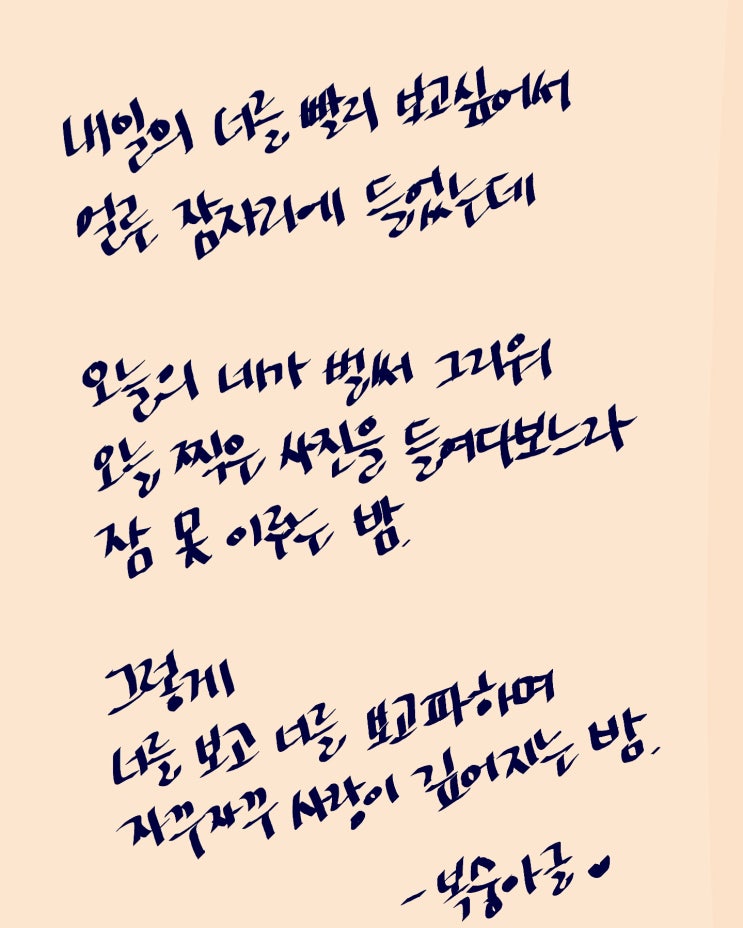 내일의 너를 빨리 보고싶어서
얼른 잠자리에 들었는데
오늘의 네가 벌써 그리워
오늘 찍은 사진을 들여다보느라
잠 못 이루는 밤.
그렇게
너를 보고 너를 보고파하며
자꾸자꾸 사랑이 깊어지는 밤.
- 복숭아글 ♥